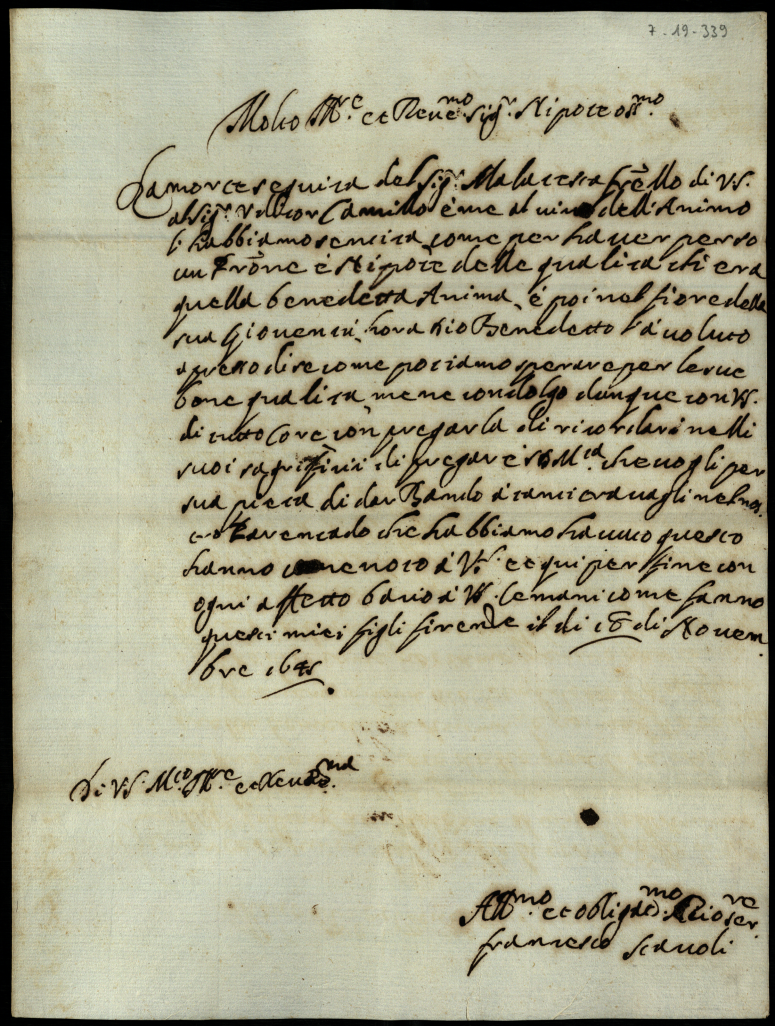 7-19-339
Molto Ill.re et Reve.mo Sig.r Nipote oss.mo
La morte seguita del Sig.r Malatesta frello di VS.
al Sig.r Camillo é me al vivo dell Animo
l'habbiamo sentita, come per haver perso
un é Nipote delle qualita chi era
quella benedetta Anima, é poi nel fiore della
sua Gioventù, hora Dio Benedetto l'à voluto
apresso di se come potiamo sperare per le sue
bone qualita, me ne condolgo dunque con VS.
di tutto Core con pregarla di ricordarsi nelli
suoi sagrifitii di pregare S. D. M.tà che vogli per
sua pieta di dar Bando à tanti travagli nel nos
tro Parentado che habbiamo hauuto questo
hanno come noto à VS. et qui per fine con
ogni affetto bacio à VS. le mani come fanno
questi miei figli firenze il di 18 di Novem
bre 1645
Di VS. M.to Ill.re et Reve.ma
Aff.mo et obligat.mo Zio ser.re
francesco Scavoli